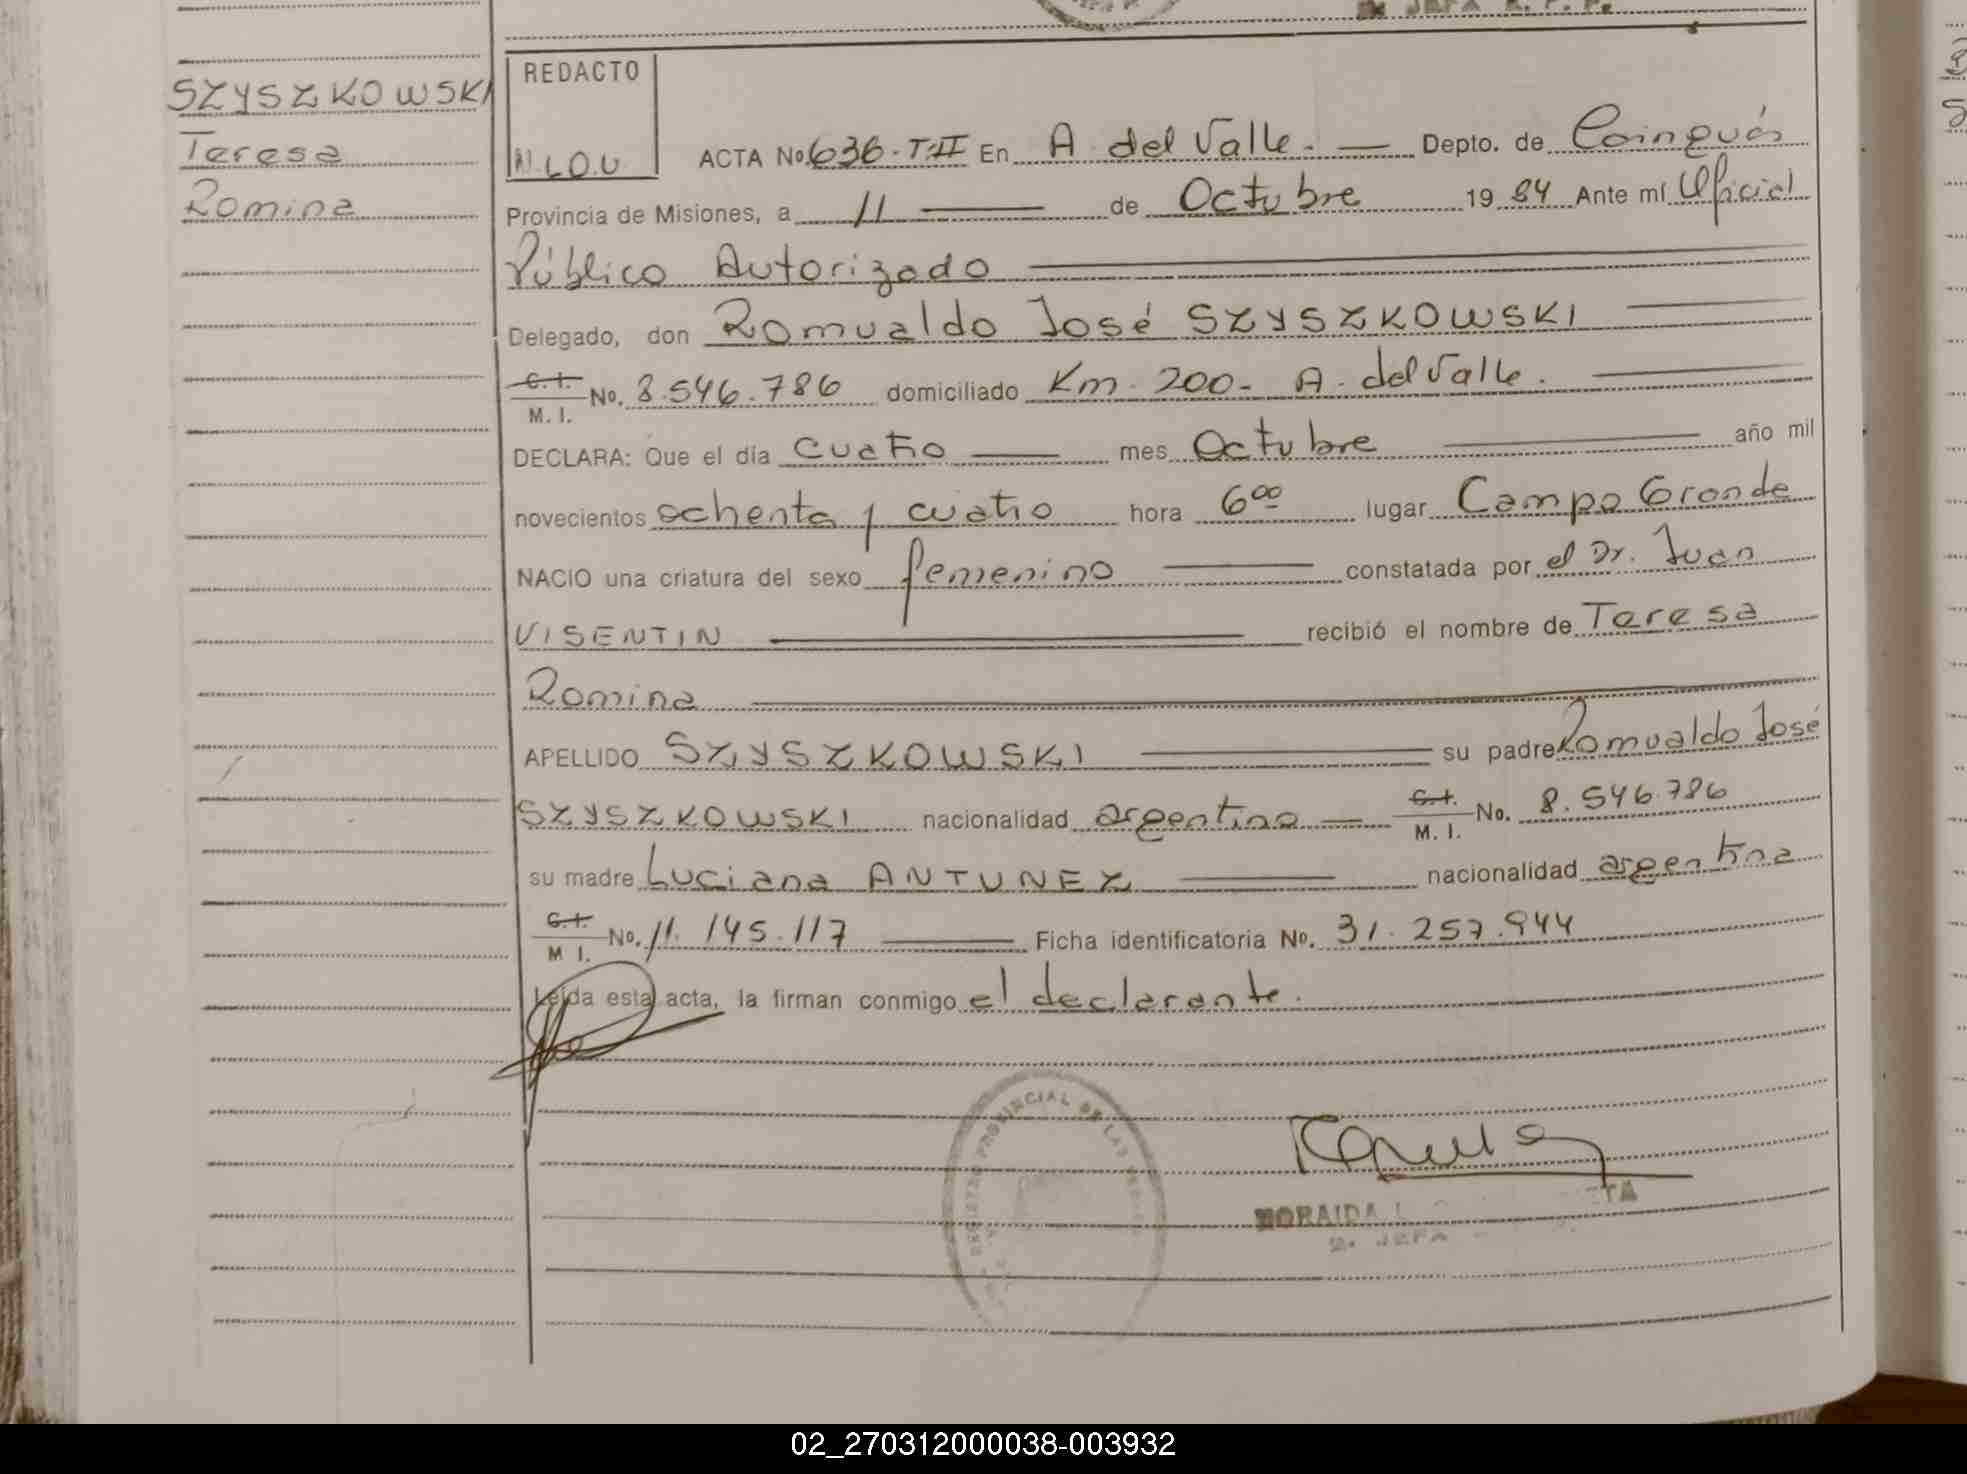 2. JEFA R. P. P.
SZYSZKOWSKI
Teresa
Romina
REDACTO
N.L.O.U
ACTA No. 636.T.II En A. del Valle. — Depto. de Cainguás
Provincia de Misiones, a 11 — de Octubre 1984 Ante mí Oficial
Público Autorizado
Delegado, don Romualdo José SZYSZKOWSKI
C.I.
M. I. No. 8.546.786 domiciliado Km. 200- A. del Valle.
DECLARA: Que el día cuatro — mes Octubre — año mil
novecientos ochenta y cuatro hora 6 00 lugar Campo Grande
NACIO una criatura del sexo femenino — constatada por el Dr. Juan
VISENTIN — recibió el nombre de Teresa
Romina
APELLIDO SZYSZKOWSKI — su padre Romualdo José
SZYSZKOWSKI nacionalidad argentina — C.I.
M. I. No. 8.546.786
su madre Luciana ANTUNEZ — nacionalidad argentina
C.I.
M I. No. 11.145.117 — Ficha identificatoria No. 31.257.944
Leída esta acta, la firman conmigo el declarante.
REGISTRO PROVINCIAL DE LAS
NORAIDA L
TA
2. JEFA
02_270312000038-003932